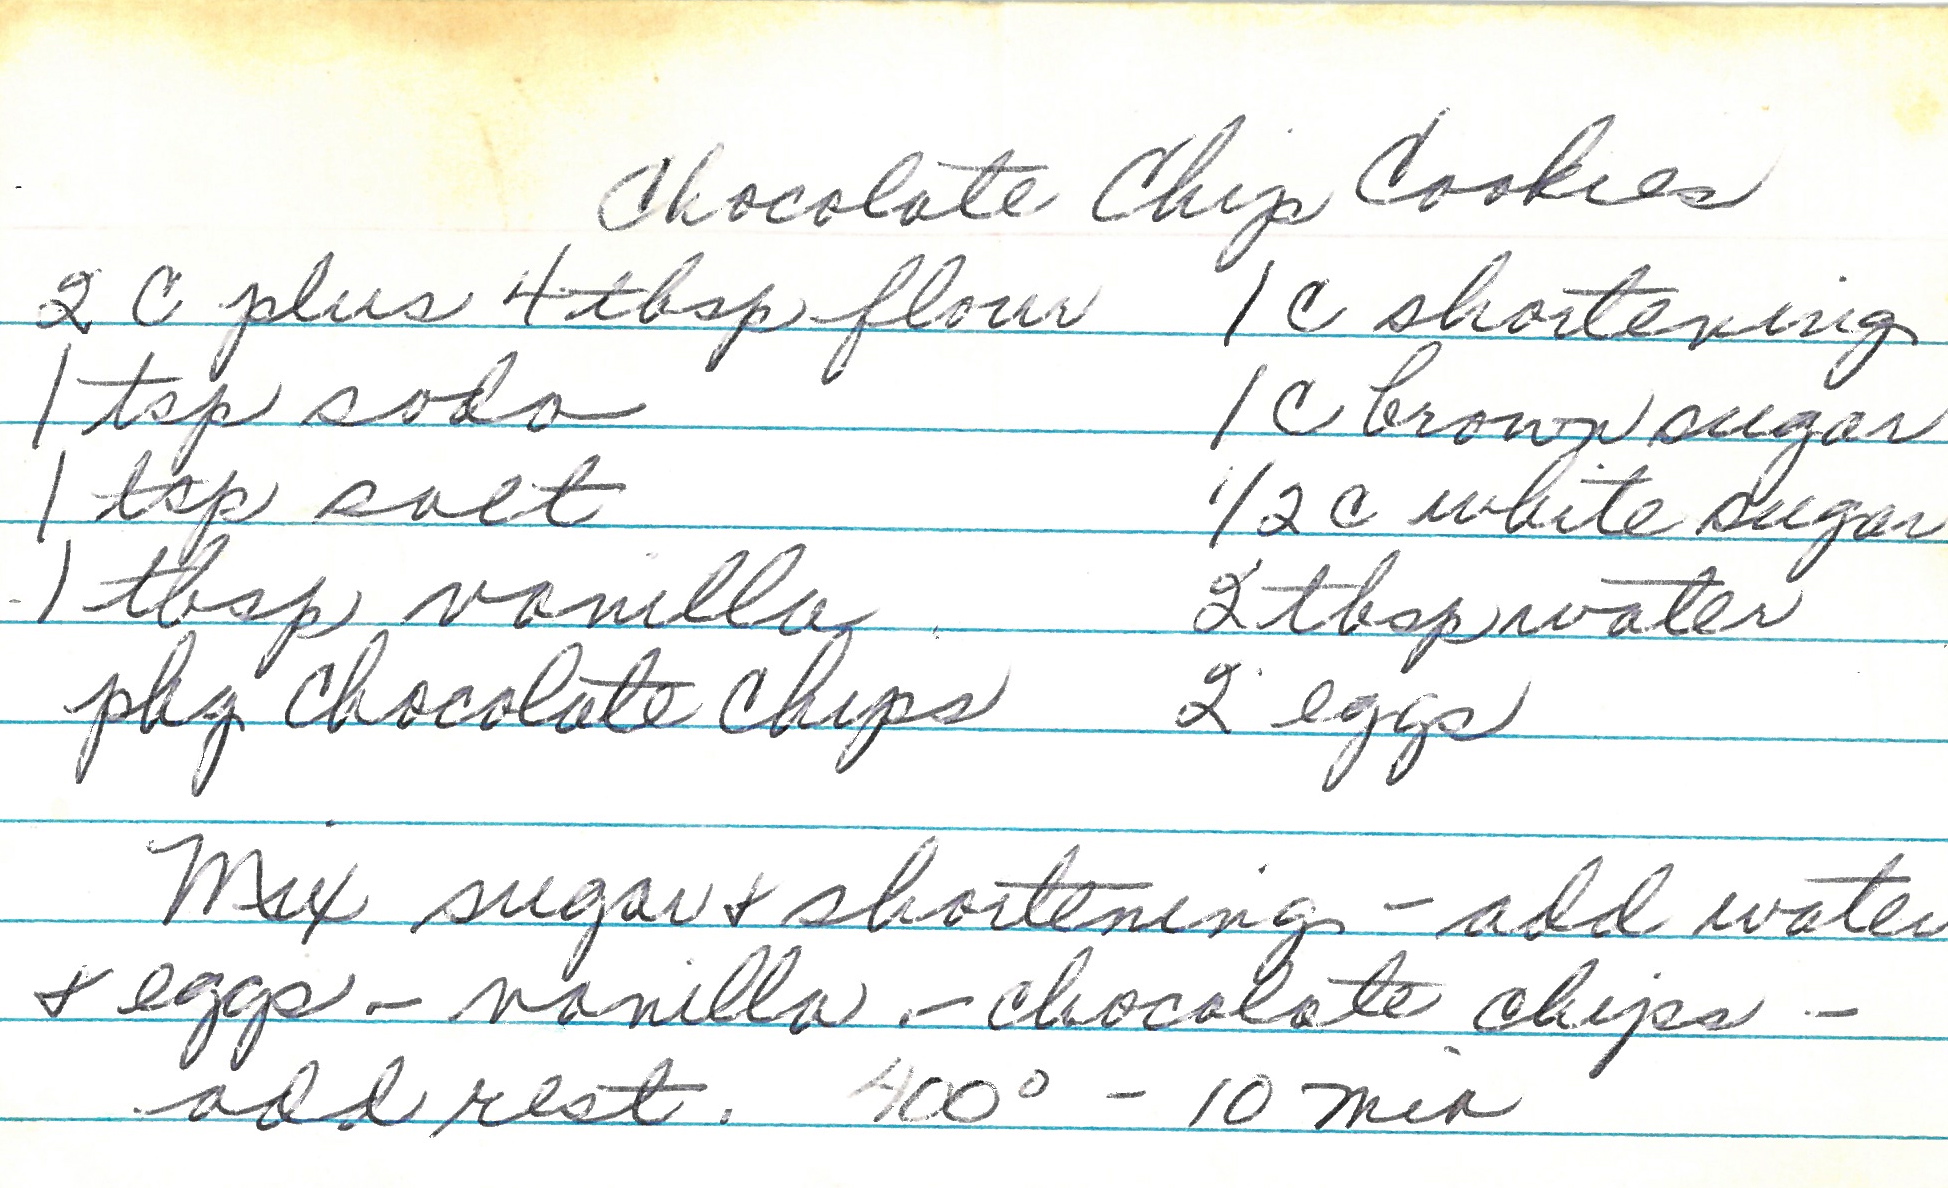 Chocolate Chip Cookies
2 C plus 4 tbsp flour 1 c shortening
1 tsp soda 1 c brown sugar
1 tsp salt 1/2 c white sugar
1 tbsp vanilla 2 tbsp water
pkg chocolate chips 2 eggs
Mix sugar & shortening - add water
& eggs - vanilla - chocolate chips -
add rest. 400° - 10 min